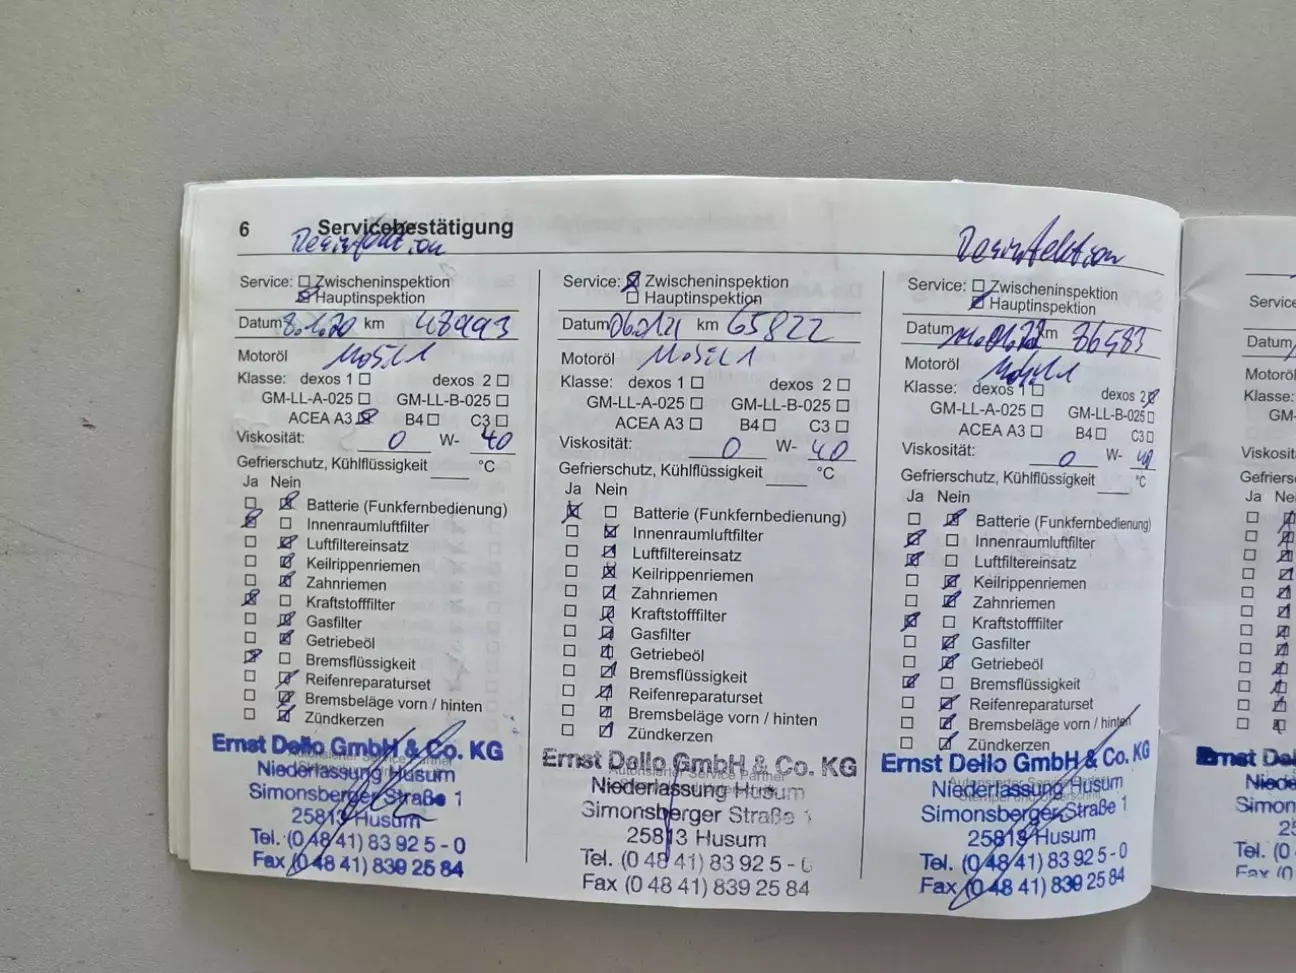 6 Servicebestätigung
Desinfektion
Service: Zwischeninspektion
Hauptinspektion
Datum km 48993
Motoröl Mobil 1
Klasse: dexos 1 dexos 2
GM-LL-A-025 GM-LL-B-025
ACEA A3 B4 C3
Viskosität: 0 W- 40
Gefrierschutz, Kühlflüssigkeit °C
Ja Nein
Batterie (Funkfernbedienung)
Innenraumluftfilter
Luftfiltereinsatz
Keilrippenriemen
Zahnriemen
Kraftstofffilter
Gasfilter
Getriebeöl
Bremsflüssigkeit
Reifenreparaturset
Bremsbeläge vorn / hinten
Zündkerzen
Ernst Dello GmbH & Co. KG
Niederlassung Husum
Simonsberger Straße 1
25813 Husum
Tel. (0 48 41) 83 92 5 - 0
Fax (0 48 41) 839 25 84
Service: Zwischeninspektion
Hauptinspektion
Datum km 65822
Motoröl Mobil 1
Klasse: dexos 1 dexos 2
GM-LL-A-025 GM-LL-B-025
ACEA A3 B4 C3
Viskosität: 0 W- 40
Gefrierschutz, Kühlflüssigkeit °C
Ja Nein
Batterie (Funkfernbedienung)
Innenraumluftfilter
Luftfiltereinsatz
Keilrippenriemen
Zahnriemen
Kraftstofffilter
Gasfilter
Getriebeöl
Bremsflüssigkeit
Reifenreparaturset
Bremsbeläge vorn / hinten
Zündkerzen
Ernst Dello GmbH & Co. KG
Autorisierter Service Partner
Niederlassung Husum
Simonsberger Straße 1
25813 Husum
Tel. (0 48 41) 83 92 5 - 0
Fax (0 48 41) 839 25 84
Desinfektion
Service: Zwischeninspektion
Hauptinspektion
Datum km 86583
Motoröl Mobil 1
Klasse: dexos 1 dexos 2
GM-LL-A-025 GM-LL-B-025
ACEA A3 B4 C3
Viskosität: 0 W- 40
Gefrierschutz, Kühlflüssigkeit °C
Ja Nein
Batterie (Funkfernbedienung)
Innenraumluftfilter
Luftfiltereinsatz
Keilrippenriemen
Zahnriemen
Kraftstofffilter
Gasfilter
Getriebeöl
Bremsflüssigkeit
Reifenreparaturset
Bremsbeläge vorn / hinten
Zündkerzen
Ernst Dello GmbH & Co. KG
Niederlassung Husum
Simonsberger Straße 1
25813 Husum
Tel. (0 48 41) 83 92 5 -0
Fax (0 48 41) 839 25 84
Service
Datum
Motoröl
Klasse:
GM-
Viskosit
Gefriers
Ja Nei
Ernst Del
Niede
Simon
25
Tel. (0
Fax (0